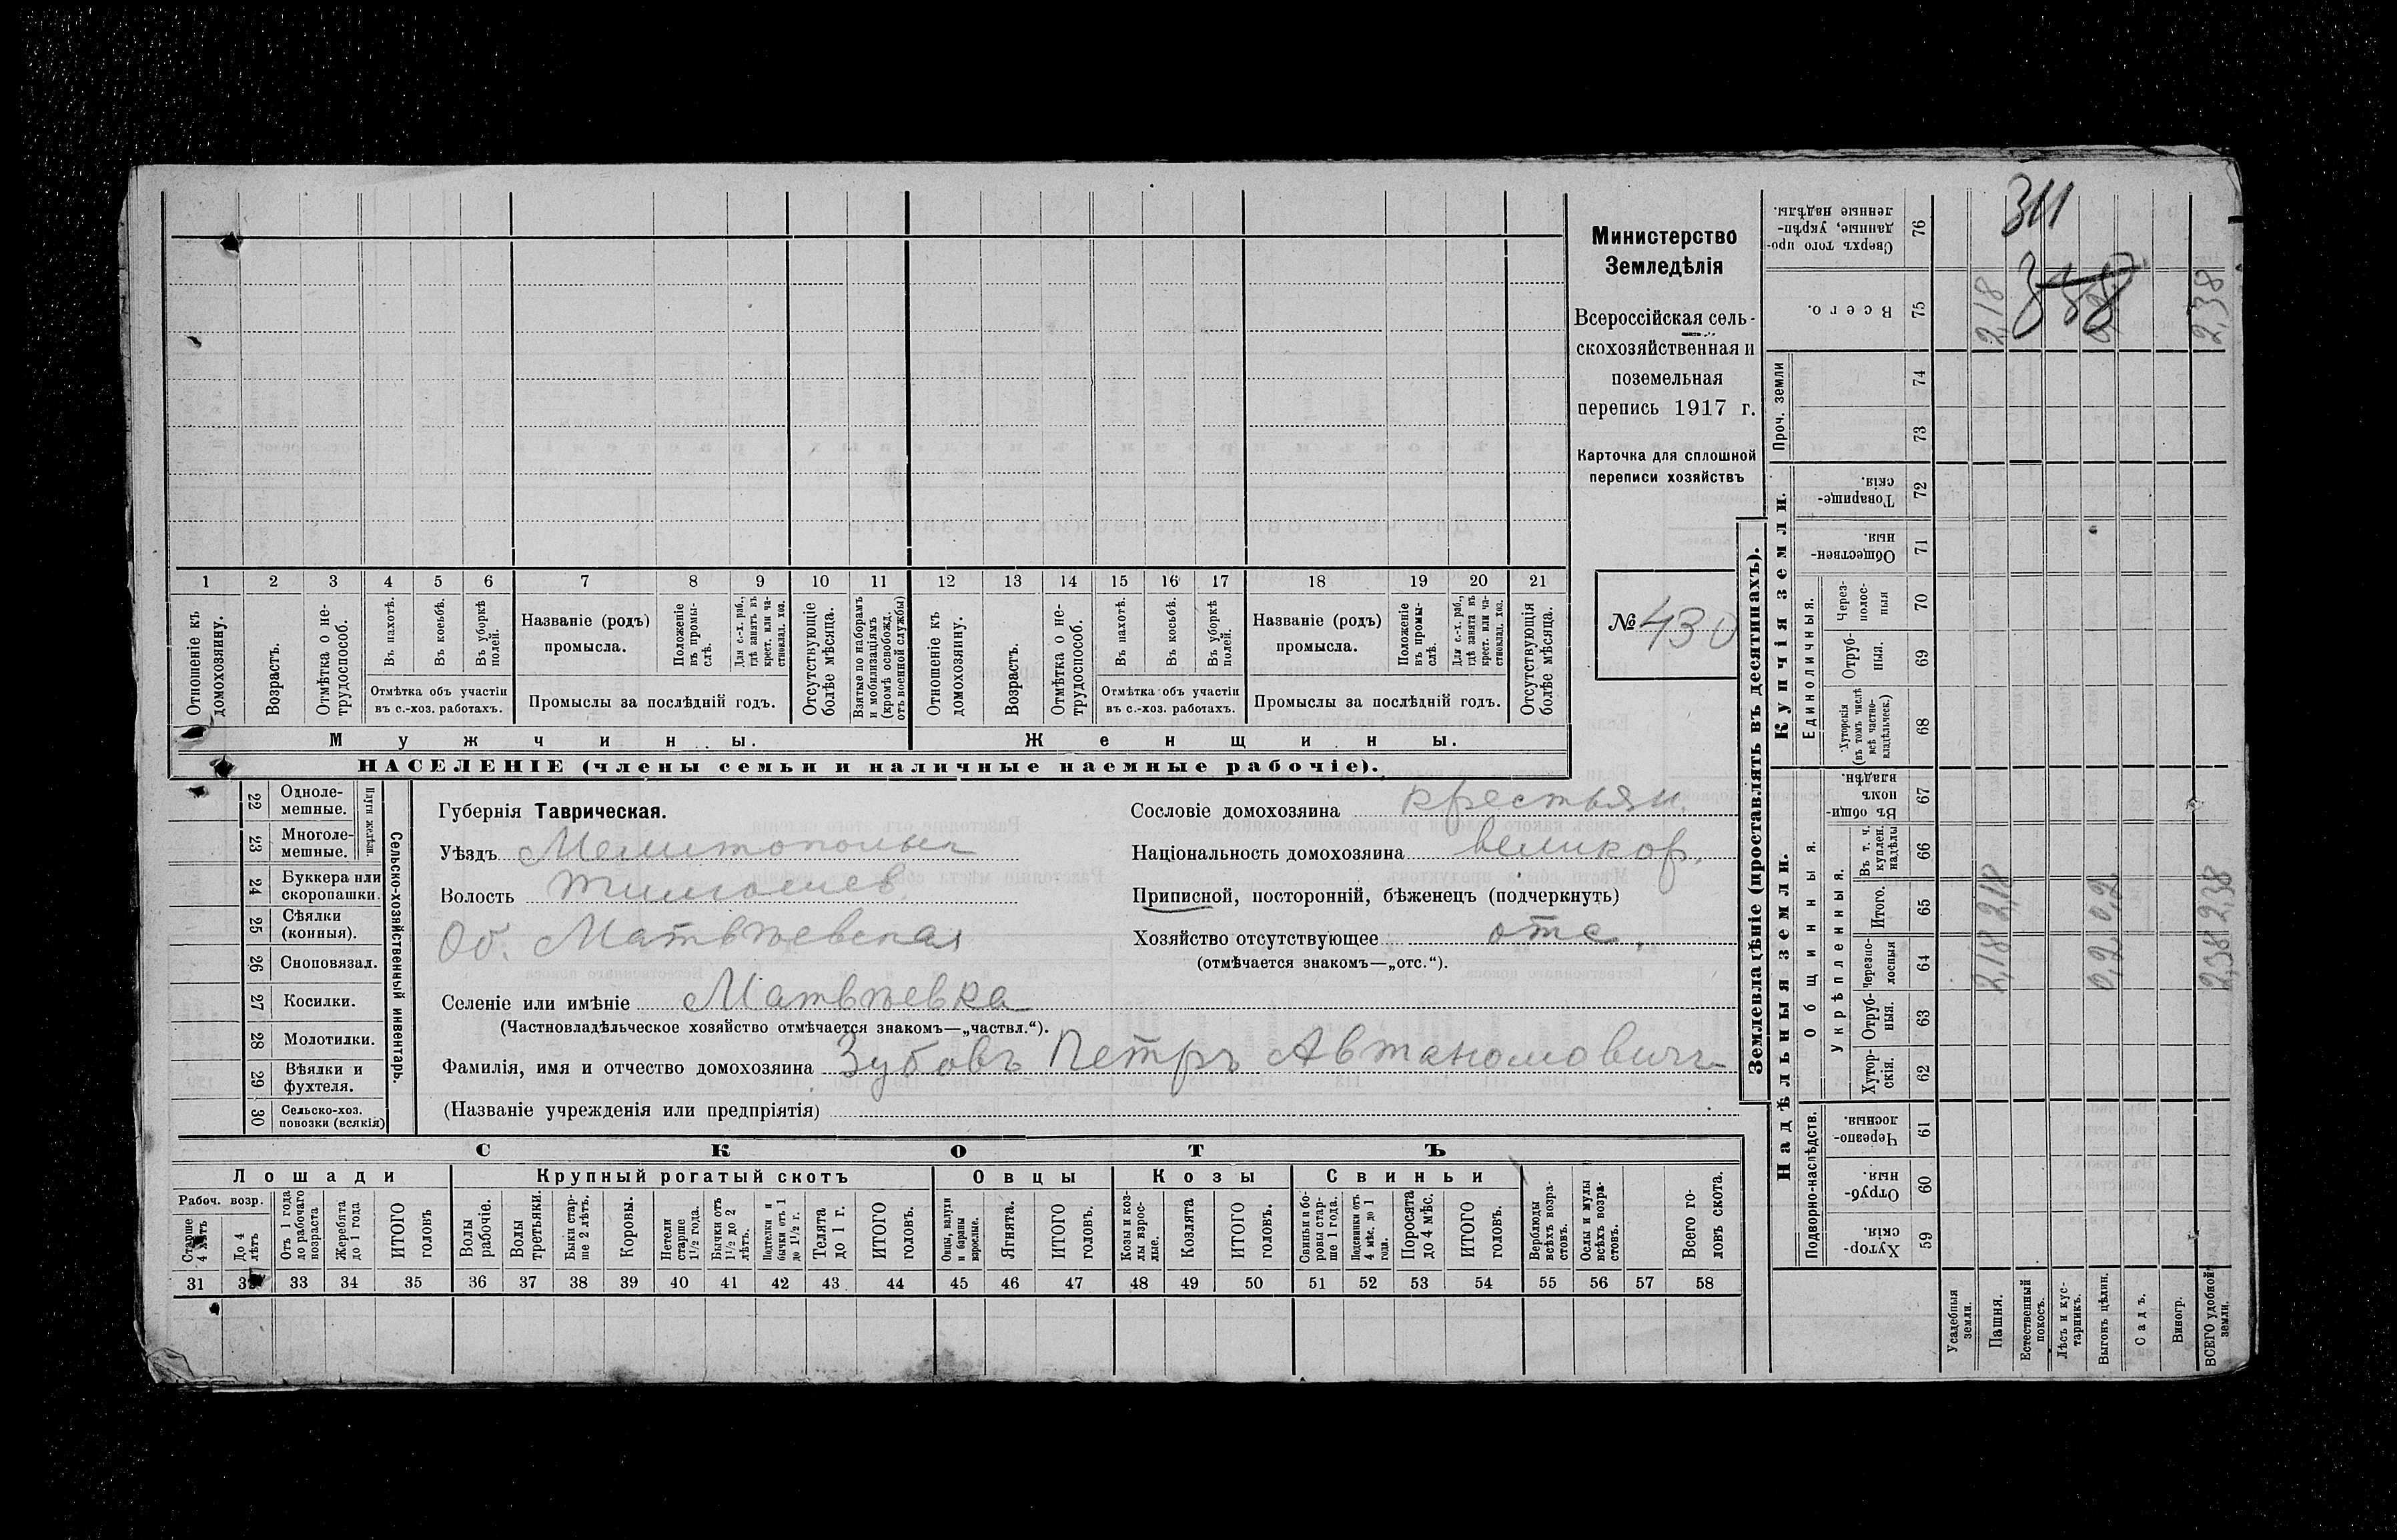 Министерство
Земледѣлія
Всероссійская сель-
скохозяйственная и
поземельная
перепись 1917 г.
Карточка для сплошной
переписи хозяйствъ
№ 430
1 2 3 4 5 6 7 8 9 10 11 12 13 14 15 16 17 18 19 20 21
Отношеніе къ домохозяину.
Возрастъ.
Отмѣтка о не-трудоспособ.
Въ пахотѣ.
Въ косьбѣ.
Въ уборкѣ полей.
Отмѣтка объ участіи
въ с.-хоз. работахъ.
Названіе (родъ)
промысла.
Положеніе въ промы-слѣ.
Для с.-х. раб., гдѣ занятъ въ крест. или ча-стновлад. хоз.
Промыслы за послѣдній годъ.
Отсутствующіе болѣе мѣсяца.
Взятые по наборамъ и мобилизаціямъ (кромѣ освобожд. отъ военной службы)
Отношеніе къ домохозяину.
Возрастъ.
Отмѣтка о не-трудоспособ.
Въ пахотѣ.
Въ косьбѣ.
Въ уборкѣ полей.
Отмѣтка объ участіи
въ с.-хоз. работахъ.
Названіе (родъ)
промысла.
Положеніе въ промы-слѣ.
Для с.-х. раб., гдѣ занята въ крест. или ча-стновлад. хоз.
Промыслы за послѣдній годъ.
Отсутствующія болѣе мѣсяца.
Мужчины.
Женщины.
НАСЕЛЕНІЕ (члены семьи и наличные наемные рабочіе).
22 Одноле-мешные.
23 Многоле-мешные.
Плуги желѣзн.
24 Буккера или скоропашки.
25 Сѣялки (конныя).
26 Сноповязал.
27 Косилки.
28 Молотилки.
29 Вѣялки и фухтеля.
30 Сельско-хоз. повозки (всякія)
Сельско-хозяйственный инвентарь.
Губернія Таврическая.
Уѣздъ Мелитопольск
Волость Тимошев
Об. Матвѣевская
Селеніе или имѣніе Матвѣевка
(Частновладѣльческое хозяйство отмѣчается знакомъ—„частвл.“).
Фамилія, имя и отчество домохозяина Зубовъ Петръ Автаномовичъ
(Названіе учрежденія или предпріятія)
Сословіе домохозяина крестьян.
Національность домохозяина великор.
Приписной, посторонній, бѣженецъ (подчеркнуть)
Хозяйство отсутствующее отс.
(отмѣчается знакомъ—„отс.“).
СКОТЪ
Лошади
Крупный рогатый скотъ
Овцы
Козы
Свиньи
Рабоч. возр.
Старше 4 лѣтъ
До 4 лѣтъ
Отъ 1 года до рабочаго возраста
Жеребята до 1 года
ИТОГО головъ
Волы рабочіе.
Волы третьяки.
Быки стар-ше 2 лѣтъ.
Коровы.
Нетели старше 1½ года.
Бычки отъ 1½ до 2 лѣтъ.
Подтелки и бычки отъ 1 до 1½ г.
Телята до 1 г.
ИТОГО головъ.
Овцы, валухи и бараны взрослые.
Ягнята.
ИТОГО головъ.
Козы и коз-лы взрос-лые.
Козлята
ИТОГО головъ.
Свиньи и бо-ровы стар-ше 1 года.
Подсвинки отъ 4 мѣс. до 1 года.
Поросята до 4 мѣс.
ИТОГО головъ.
Верблюды всѣхъ возра-стовъ.
Ослы и мулы всѣхъ возра-стовъ.
Всего го-ловъ скота.
31 32 33 34 35 36 37 38 39 40 41 42 43 44 45 46 47 48 49 50 51 52 53 54 55 56 57 58
Землевладѣніе (проставлять въ десятинахъ).
Купчія земли.
Надѣльныя земли.
Проч. земли
Единоличныя.
Общинныя.
Укрѣпленныя.
Подворно-наслѣдств.
76 Сверхъ того про-данные, укрѣп-ленные надѣлы.
75 Всего.
74
73
72 Товарище-скія.
71 Обществен-ныя.
70 Через-полос-ныя
69 Отруб-ныя.
68 Хуторскія (въ томъ числѣ всѣ частно-владѣльческ.)
67 Въ общин-номъ владѣн.
66 Въ т. ч. куплен. надѣлы
65 Итого.
64 Черезпо-лосныя
63 Отруб-ныя.
62 Хутор-скія.
61 Черезпо-лосныя
60 Отруб-ныя.
59 Хутор-скія.
Усадебныя земли.
Пашня.
Естественный покосъ.
Лѣсъ и кус-тарникъ.
Выгонъ цѣлин.
Садъ.
Виногр.
ВСЕГО удобной земли.
311
358
2,18
2,38
2,18 2,18
0,2 0,2
2,38 2,38